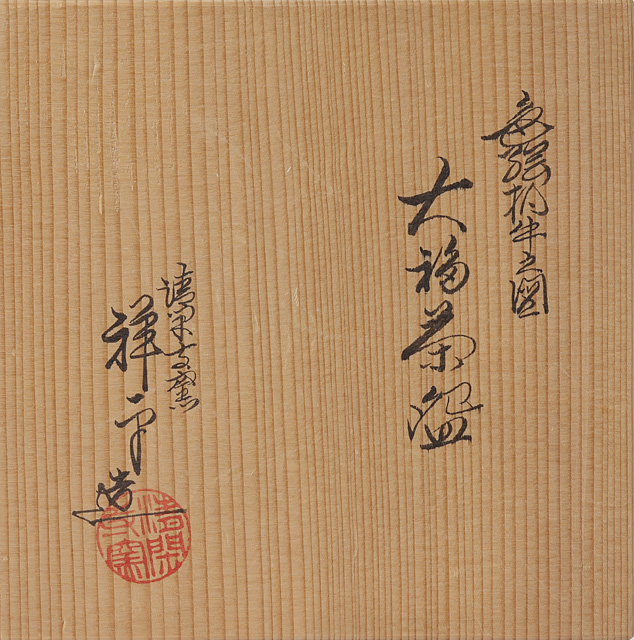 色絵牛之図
大福茶盌
清閑寺窯
祥平造
清閑寺窯